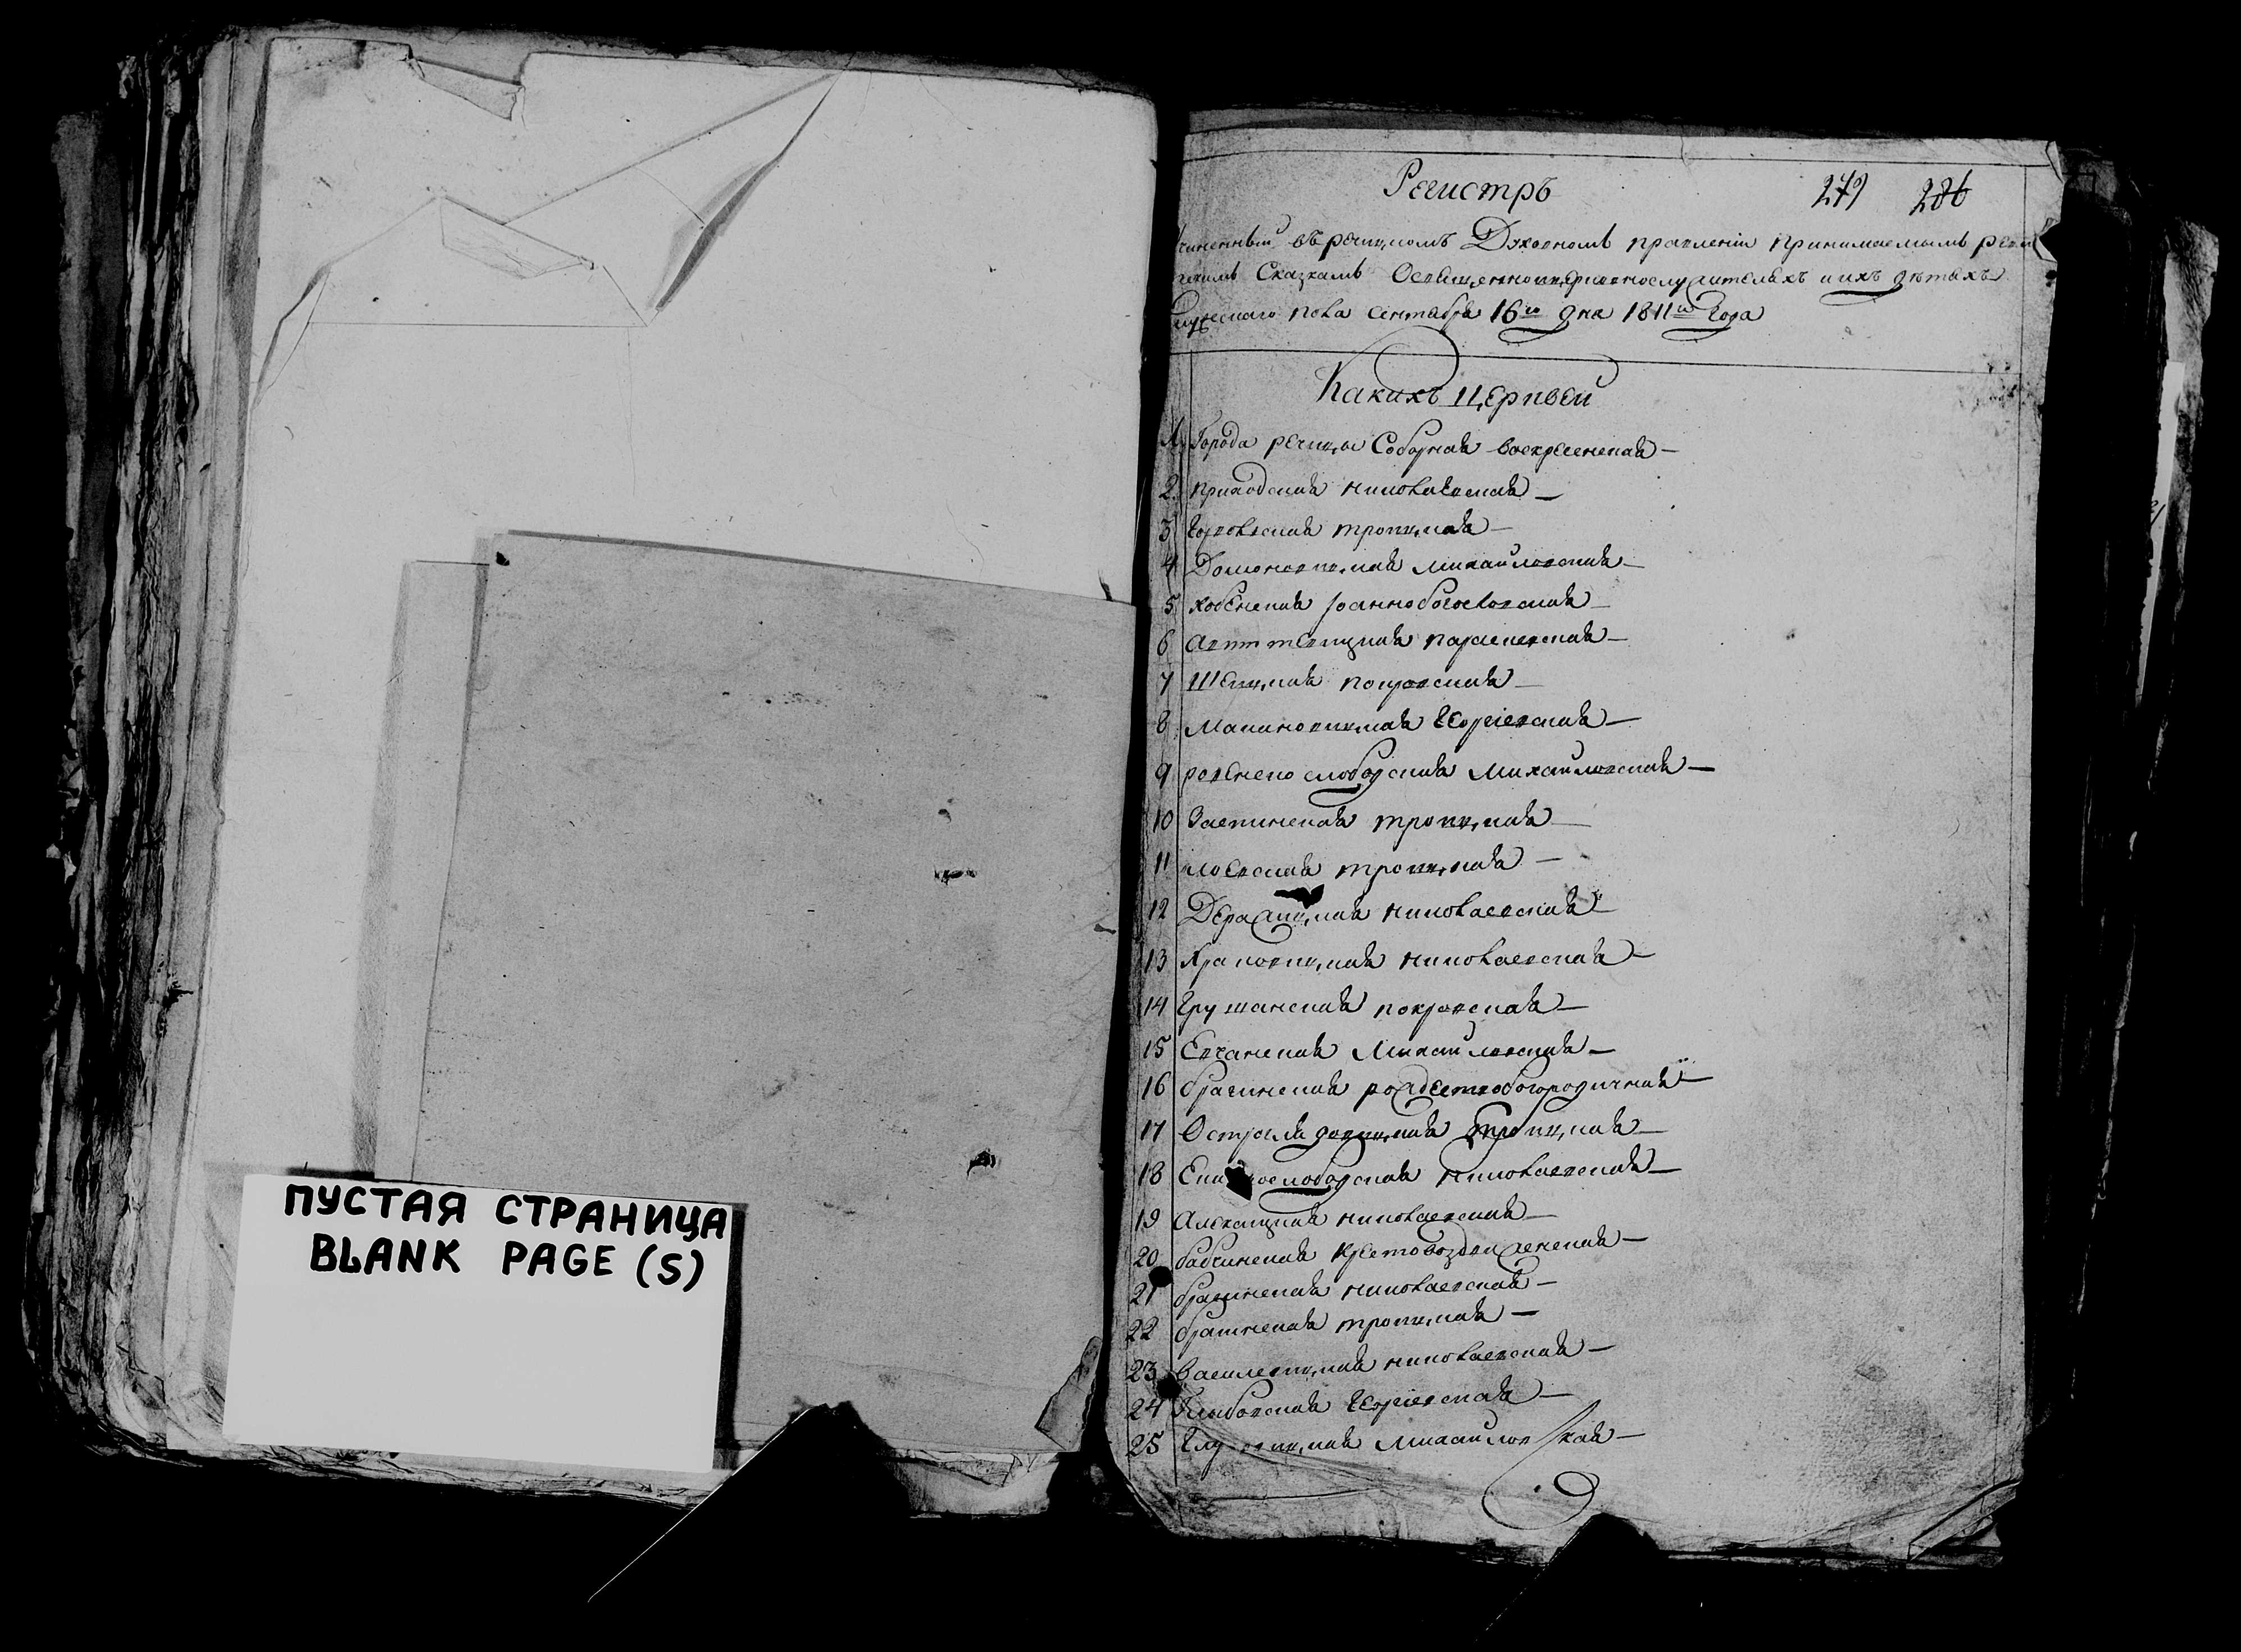 ПУСТАЯ СТРАНИЦА
BLANK PAGE (S)
Регистръ
279 286
въ речицкомъ Духовномъ правленіи принимаемымъ
Сказкамъ Освященноцерковнослужителяхъ и ихъ дѣтяхъ
сентября 16го дня 1811го Года
Какихъ Церквей
1 Города речицы Соборная воскресенская —
2 приходская николаевская —
3 троицкая —
4 Домановицкая михайловская —
5 хобенская Iоаннобогословская —
6 парасковская —
7 покровская —
8 Малиновицкая Георгіевская —
9 ровенско слободская Михайловская —
10 Заспинская троицкая —
11 лоевская троицкая —
12 Деражицкая николаевская —
13 Храковицкая николаевская —
14 Грушанская покровская —
15 Евчанская Михайловская —
16 брагинская рождествобогородичная —
17 Остроглядовицкая Троицкая —
18 слободская николаевская —
19 николаевская —
20 бабчинская Крестовоздвиженская —
21 брагинская николаевская —
22 брагинская троицкая —
23 Василевицкая николаевская —
24 Георгіевская —
25 Михайловская —